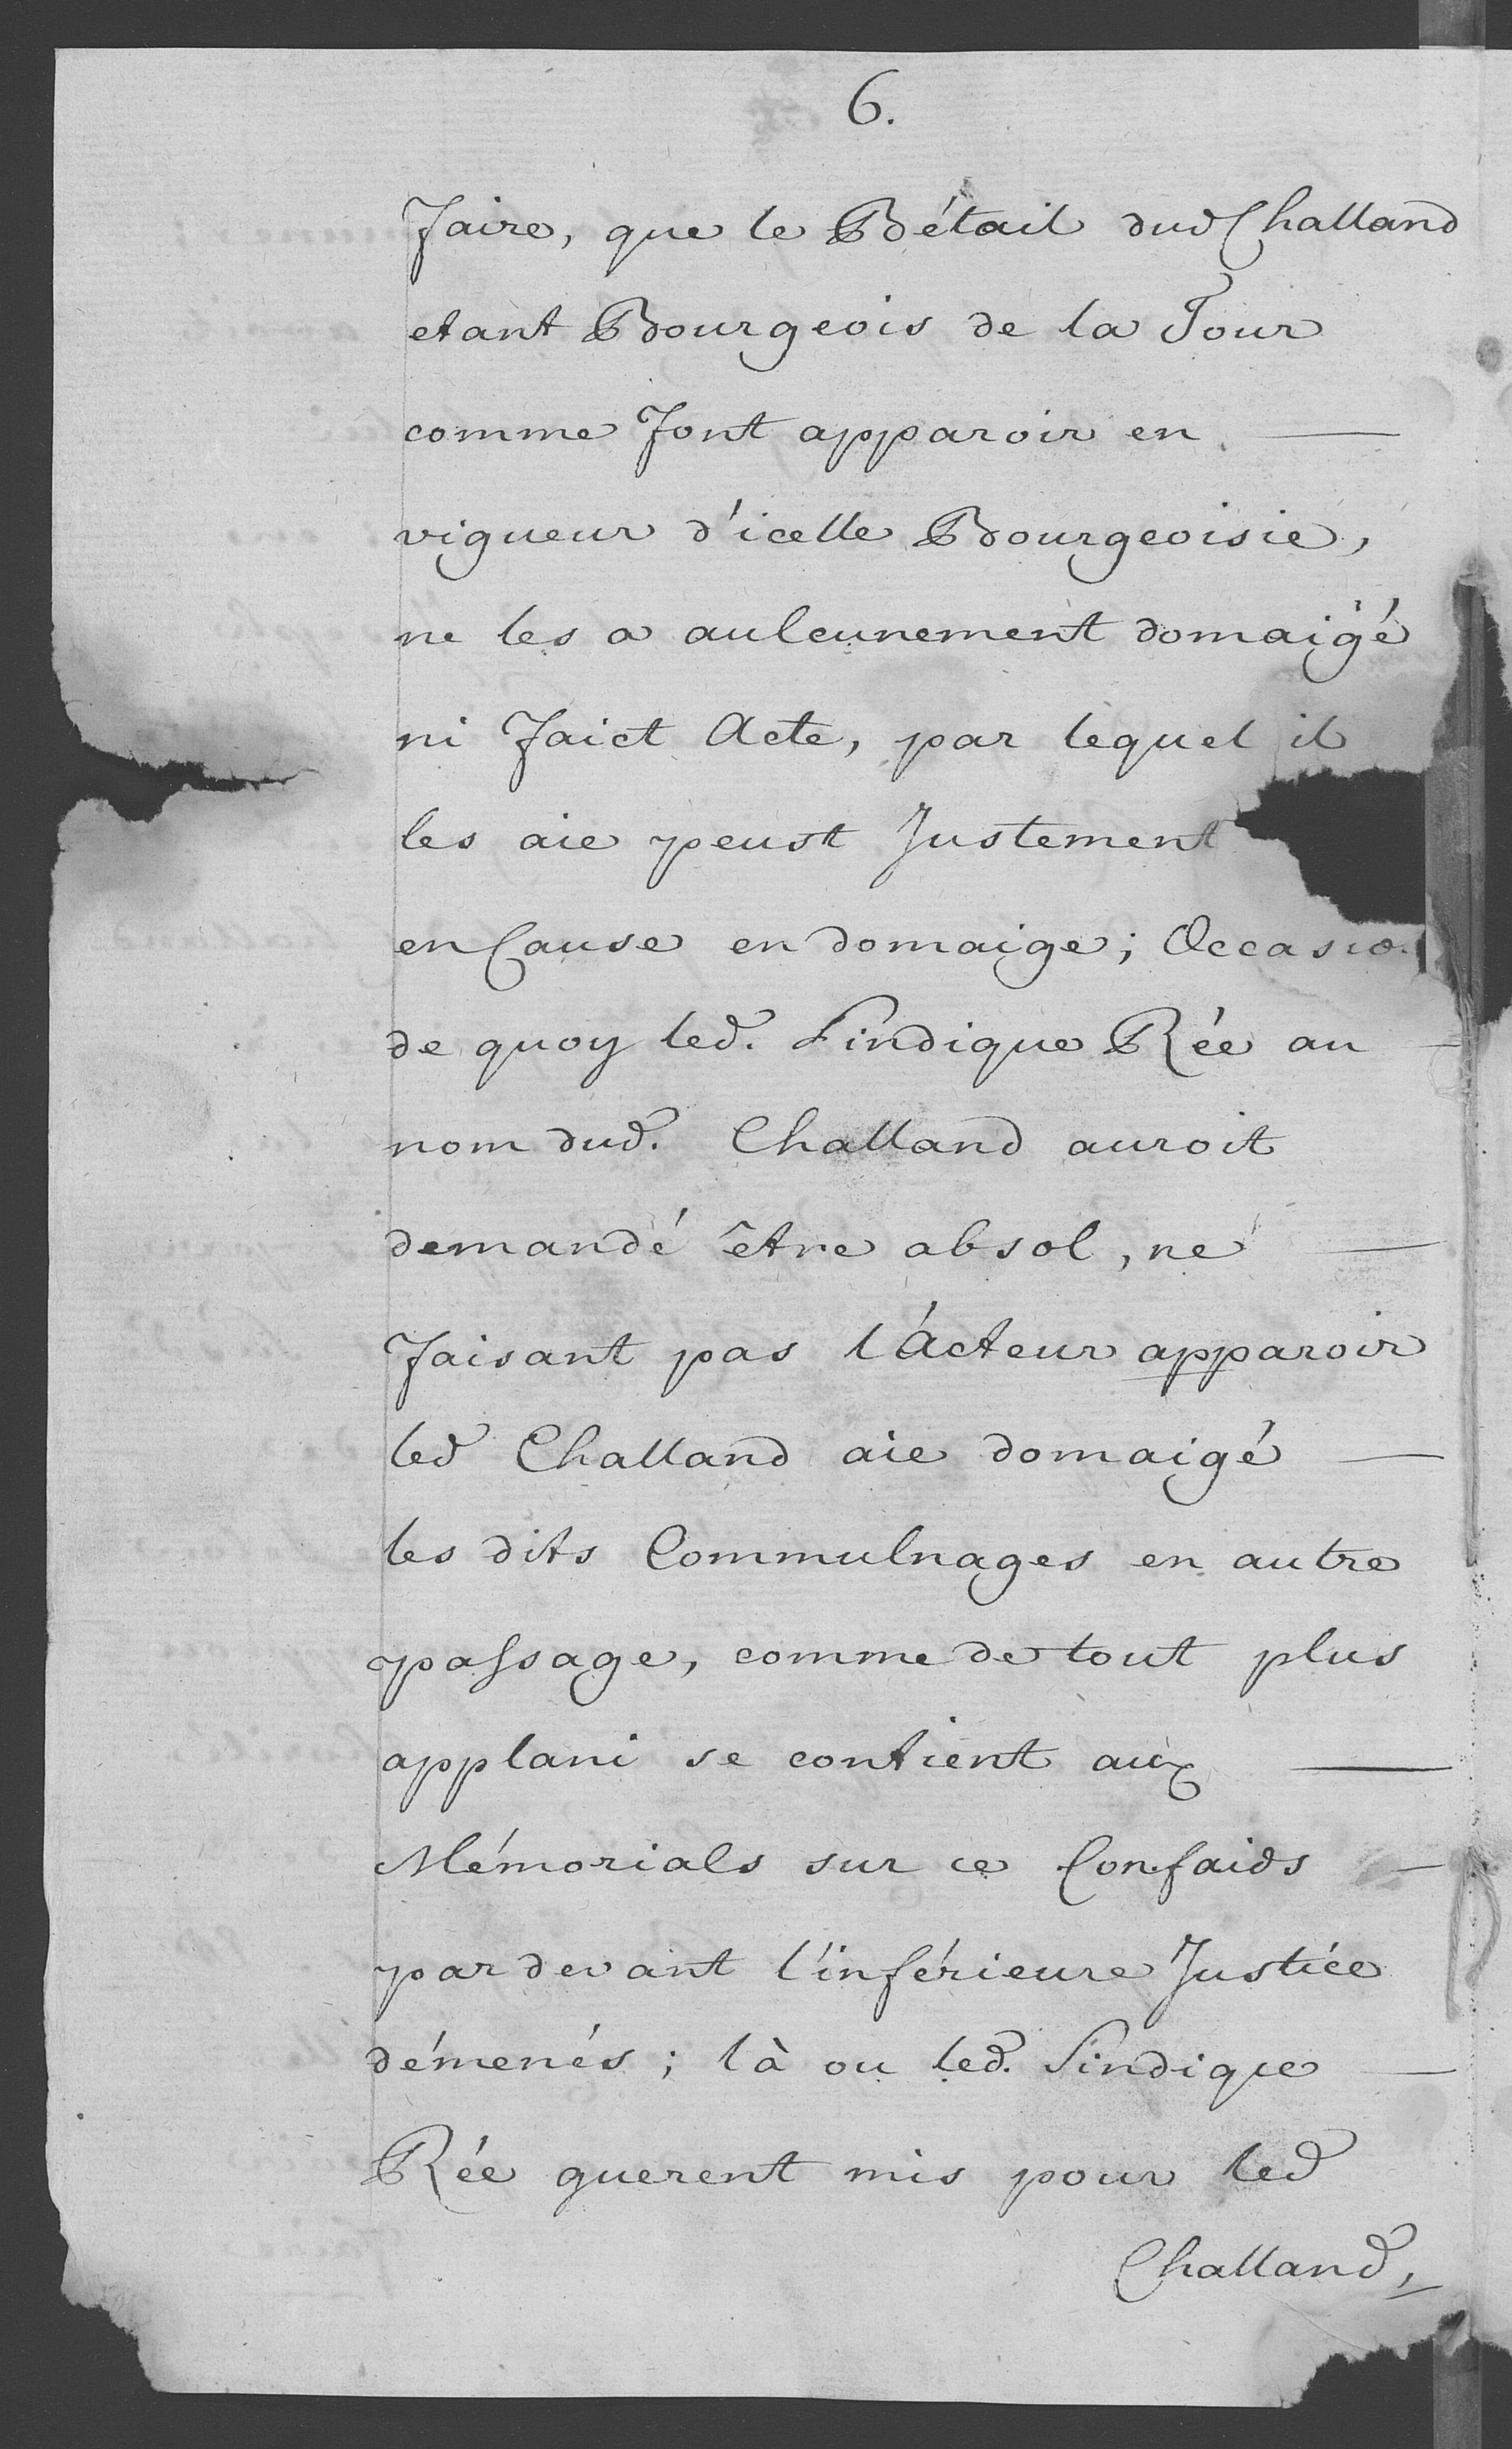 6.
faire, que le Bétail dud Challand
etant Bourgeois de la Tour
comme font apparoir en
vigueur d'icelle Bourgeoisie,
ne les a aulcunement domaigé
ni faict Acte, par lequel il
les aie peust Justement
en Cause en domaige; Occasio
de quoy led. Sindique Rée au
nom dud. Challand auroit
demandé être absol, ne
faisant pas l'Acteur apparoir
led Challand aie domaigé
les dits Commulnages en autre
passage, comme de tout plus
applani se contient aux
Mémorials sur ce Confaids
par devant l'inférieure Justice
démenés; là ou led. Sindique
Rée querent mis pour led
Challand,